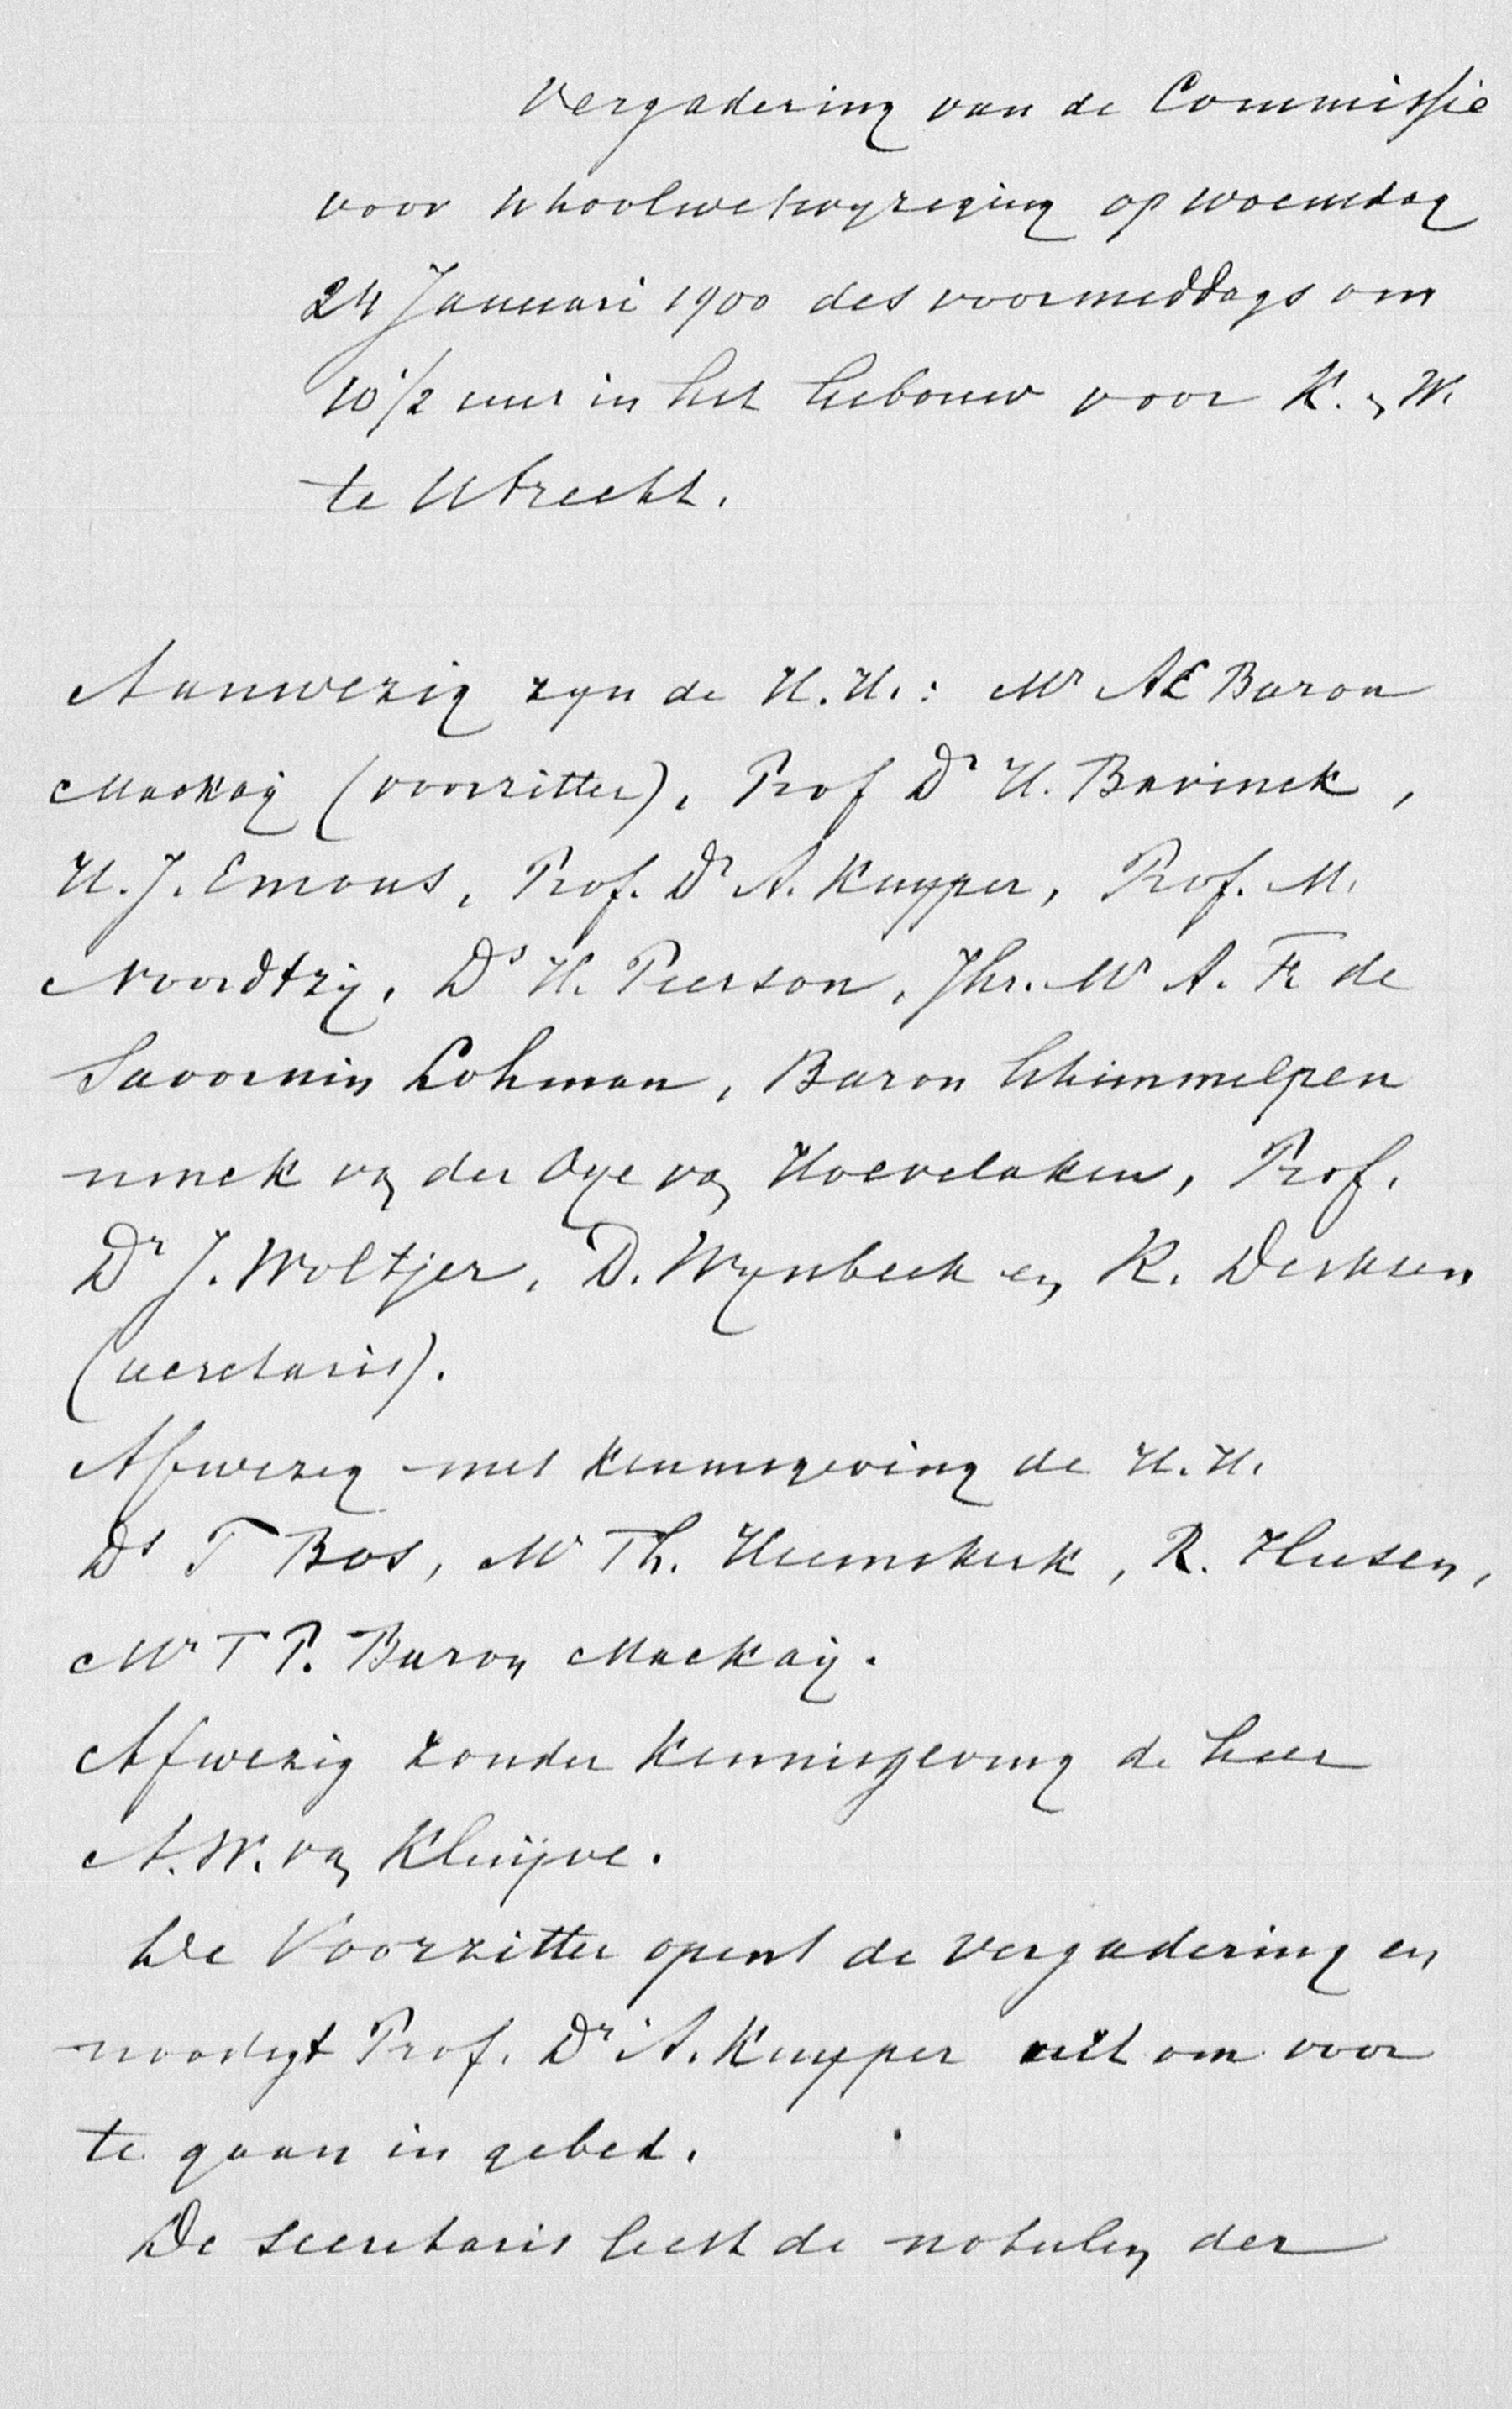 Vergadering van de Commissie
voor schoolwetwyziging op woensdag
24 Januari 1900 des voormiddags om
10 1/2 uur in het Gebouw voor K. en W.
te Utrecht.
Aanwezig zyn de H.H.: Mr AE Baron
Mackaij (voorzitter), Prof Dr H. Bavinck,
H. J. Emous, Prof. Dr A. Kuyper, Prof. M.
Noordtzij, Ds H. Pierson, Jhr. Mr A. F. de
Savornin Lohman, Baron Schimmelpen
ninck van der Oye van Hoevelaken, Prof.
Dr J. Woltjer, D. Wynbeek en R. Derksen
(secretaris).
Afwezig met kennisgeving de H.H.
Ds T Bos, Mr Th. Heemskerk, R. Husen,
Mr T P. Baron Mackaij.
Afwezig zonder kennisgeving de heer
A. W. van Kluijve.
De Voorzitter opent de vergadering en
noodigt Prof. Dr A. Kuyper uit om voor
te gaan in gebed.
De secretaris leest de notulen der